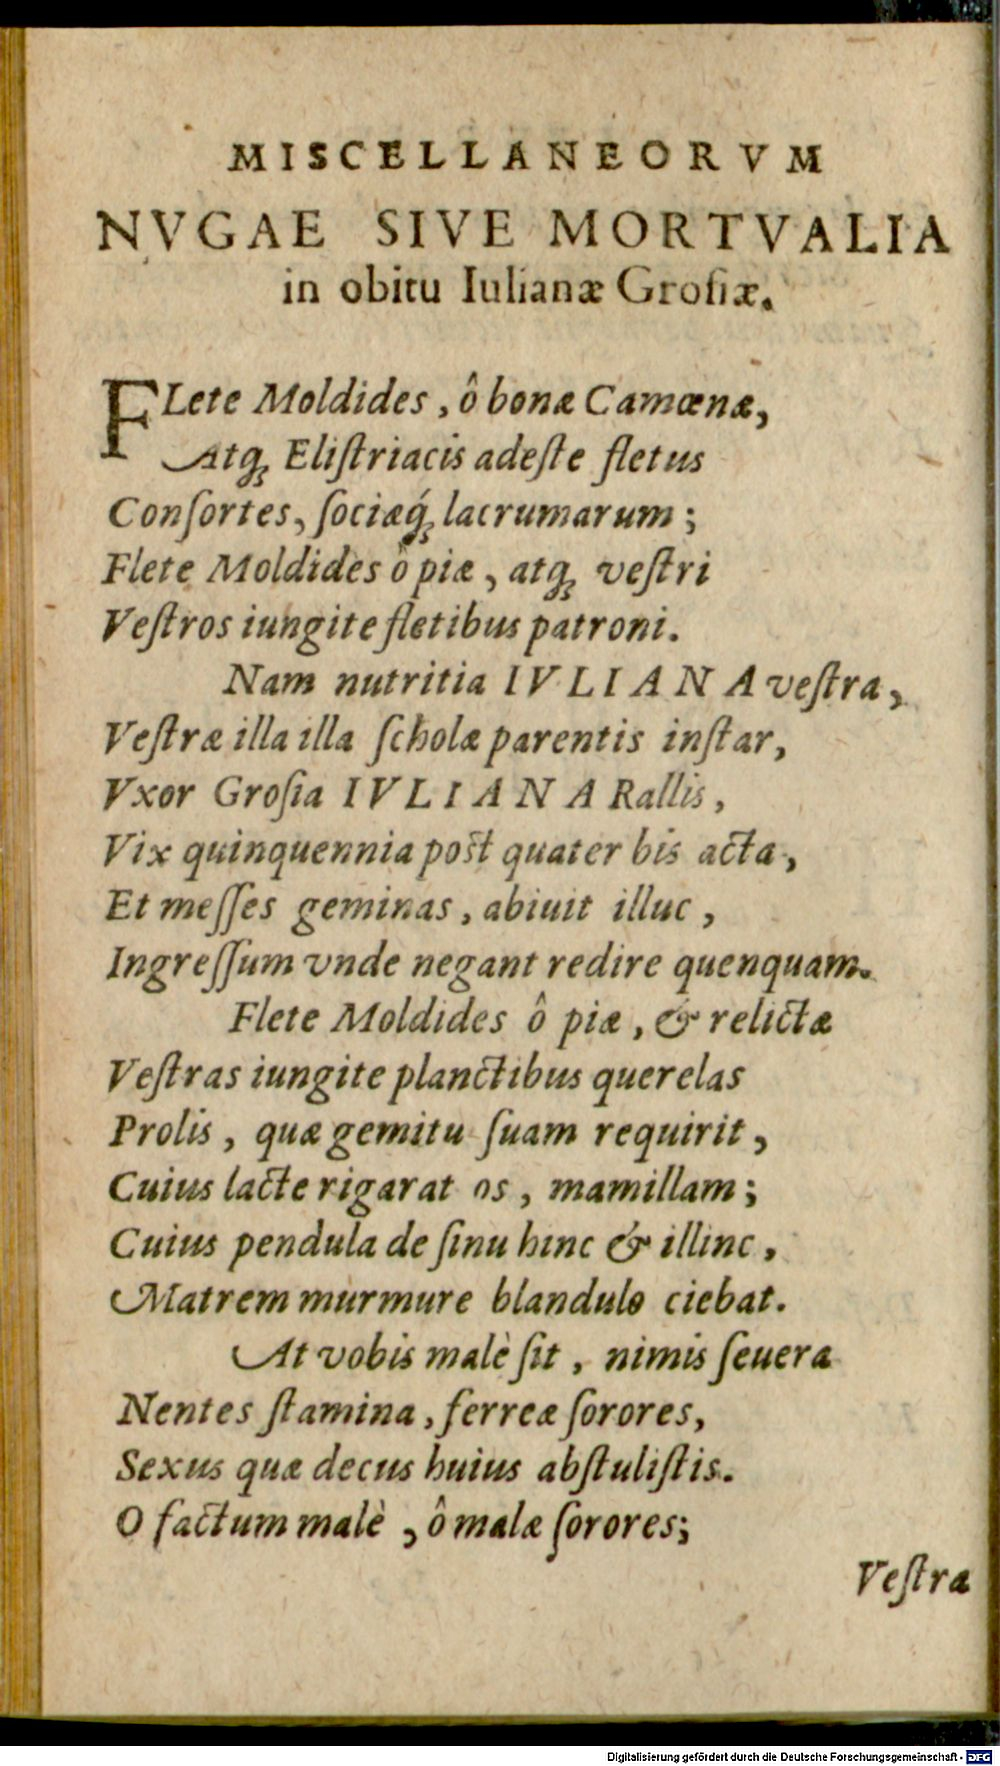 MISCELLANEORVM
NVGAE SIVE MORTVALIA
in obitu Iulianæ Grosiæ.
FLete Moldides, ô bonæ Camœnæ,
Atq; Eliſtriacis adeſte fletus
Conſortes, ſociæq́; lacrumarum;
Flete Moldides ô piæ, atq; veſtri
Veſtros iungite fletibus patroni.
Nam nutritia IVLIANA veſtra,
Veſtræ illa illa ſcholæ parentis inſtar,
Vxor Groſia IVLIANA Rallis,
Vix quinquennia poſt quater bis acta,
Et meſſes geminas, abiuit illuc,
Ingreſſum vnde negant redire quenquam.
Flete Moldides ô piæ, & relictæ
Veſtras iungite planctibus querelas
Prolis, quæ gemitu ſuam requirit,
Cuius lacte rigarat os, mamillam;
Cuius pendula de ſinu hinc & illinc,
Matrem murmure blandulo ciebat.
At vobis malè ſit, nimis ſeuera
Nentes ſtamina, ferreæ ſorores,
Sexus quæ decus huius abſtuliſtis.
O factum malè, ô malæ ſorores;
Veſtra
Digitalisierung gefördert durch die Deutsche Forschungsgemeinschaft - DFG